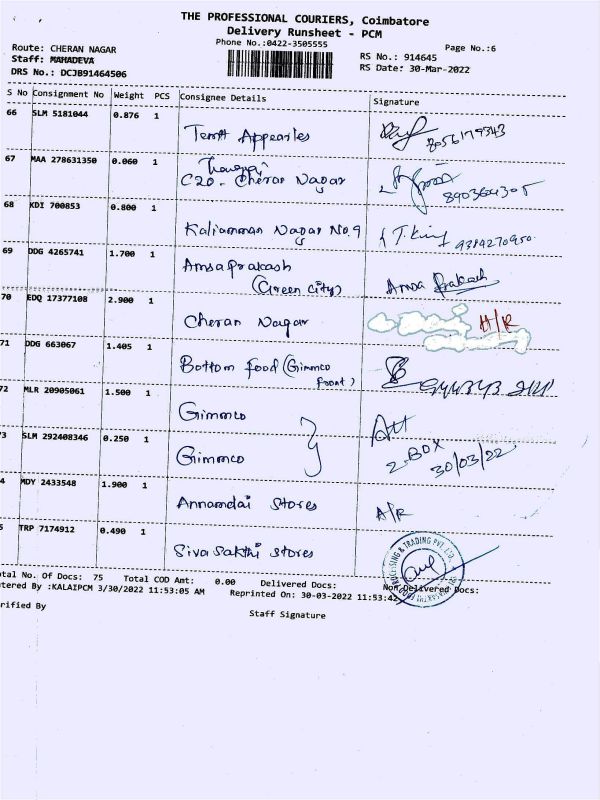 THE PROFESSIONAL COURIERS, Coimbatore
Delivery Runsheet - PCM
Phone No.:0422-3505555
Page No.:6
Route: CHERAN NAGAR
Staff: MAHADEVA
DRS No.: DCJB91464506
RS No.: 914645
RS Date: 30-Mar-2022
S No Consignment No Weight PCS Consignee Details Signature
66 SLM 5181044 0.876 1
8056179343
67 MAA 278631350 0.060 1
C20 - Cheran Nagar
68 KDI 700853 0.800 1
Kaliamman Nagar No.9
T. King 9384270950
69 DDG 4265741 1.700 1
Amsaprakash
(Green city)
Amsa Prakash
70 EDQ 17377108 2.900 1
Cheran Nagar H/R
71 DDG 663067 1.405 1
Bottom Food (Gimmco
Front)
72 MLR 20905061 1.500 1
Gimmco
Att
3 SLM 292408346 0.250 1
Gimmco
2-BOX
30/03/22
4 MDY 2433548 1.900 1
Annamalai Stores A/R
5 TRP 7174912 0.490 1
Siva Sakthi Stores
tal No. Of Docs: 75 Total COD Amt: 0.00 Delivered Docs: Non Delivered Docs:
tered By :KALAIPCM 3/30/2022 11:53:05 AM Reprinted On: 30-03-2022 11:53:42
rified By
Staff Signature